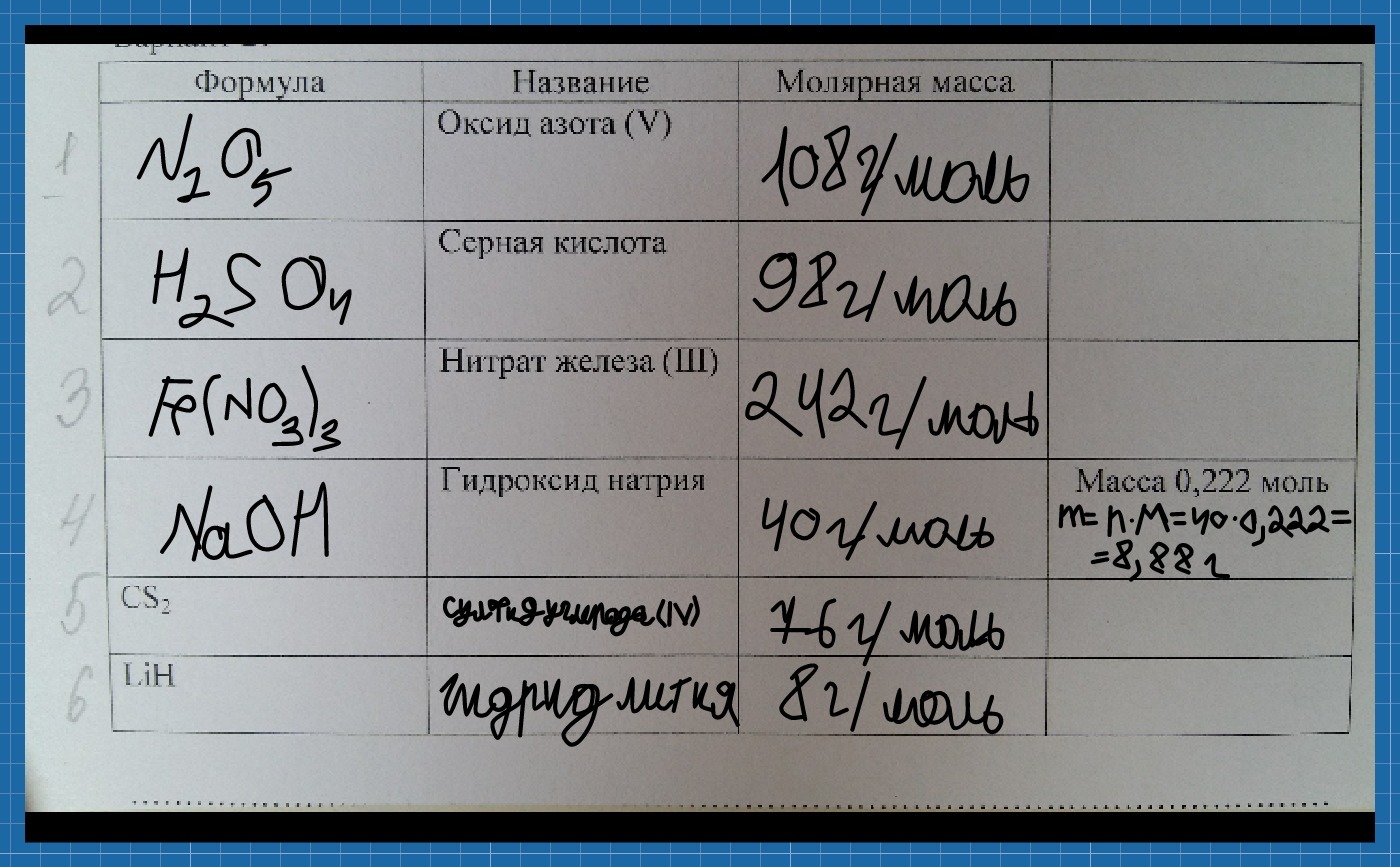 Вариант 2.
Формула Название Молярная масса
1 N2O5 Оксид азота (V) 108 г/моль
2 H2SO4 Серная кислота 98 г/моль
3 Fe(NO3)3 Нитрат железа (III) 242 г/моль
4 NaOH Гидроксид натрия 40 г/моль Масса 0,222 моль
m=n·M=40·0,222=
=8,88 г
5 CS₂ сульфид углерода (IV) 76 г/моль
6 LiH гидрид лития 8 г/моль